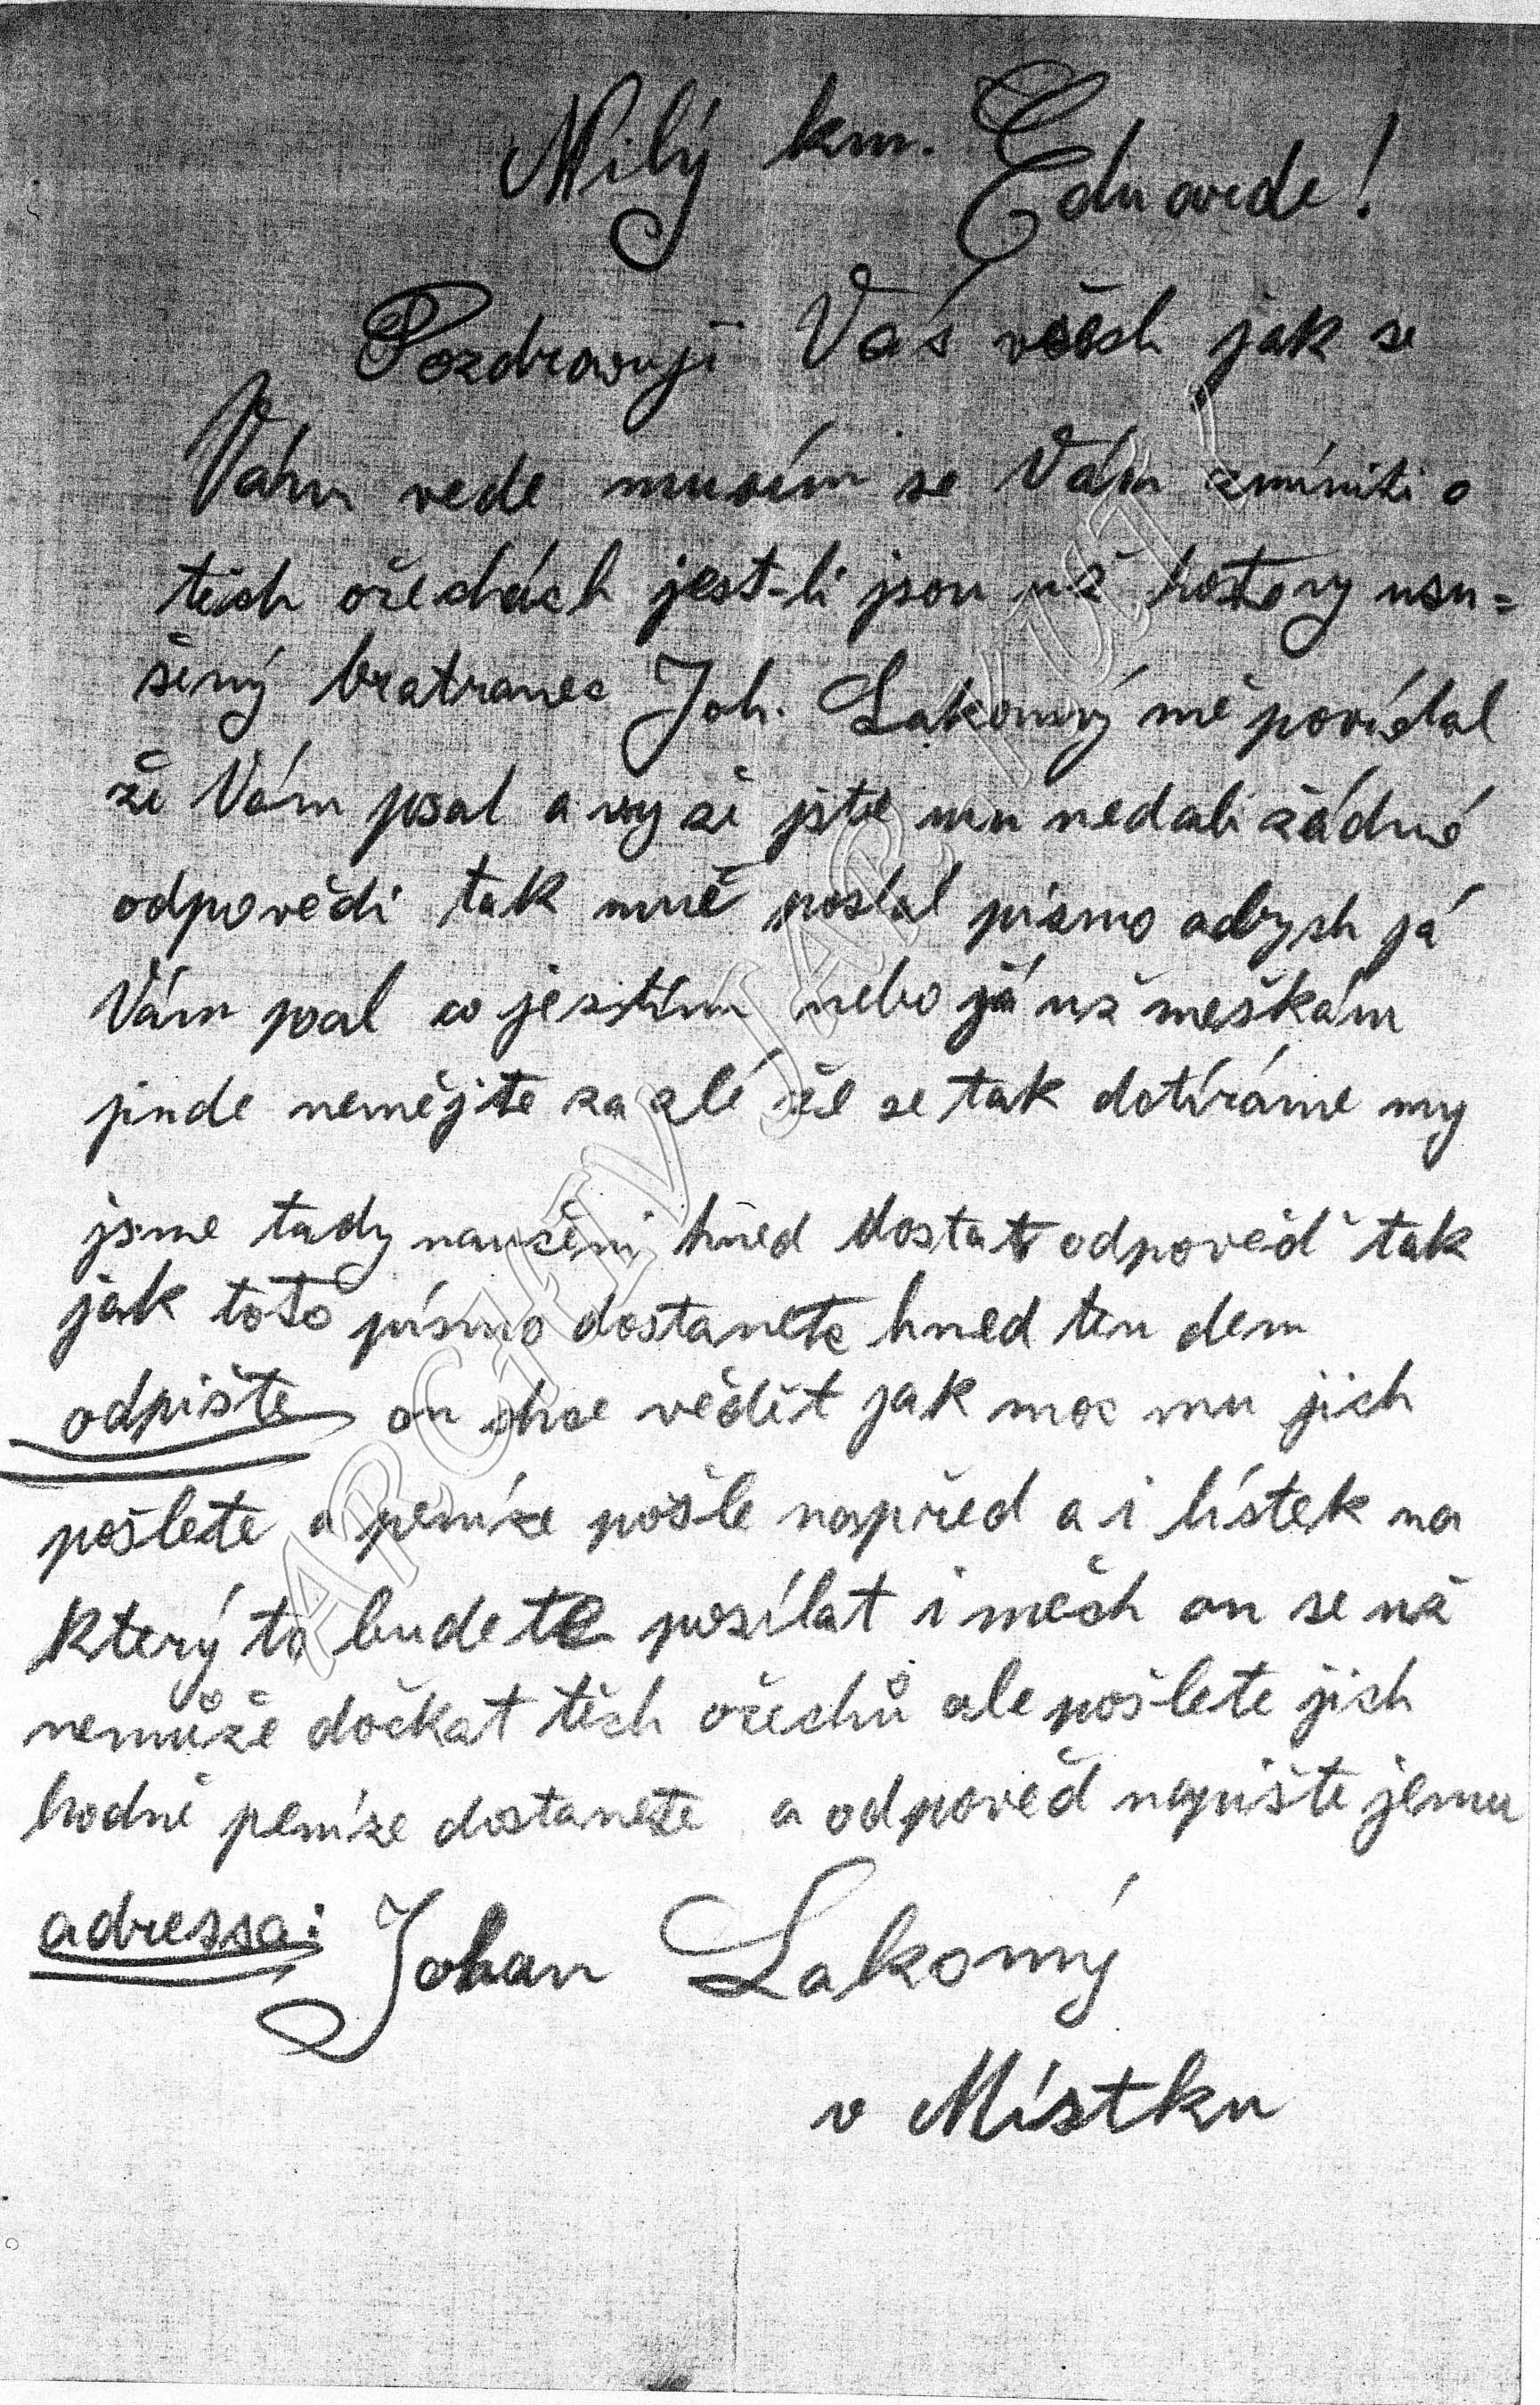 Milý km. Eduarde!
Pozdravuji Vás všech jak se
Vám vede musím se Vám zmíniti o
těch ořechách jest-li jsou už hotovy usu=
šený bratranec Joh. Lakomý mě povídal
že Vám psal a vy že jste mu nedali žádné
odpovědi tak mně poslal písmo abych já
Vám psal co je s tím nebo já už meškám
jinde nemějte za zlé že se tak dotíráme my
jsme tady naučeni hned dostat odpověď tak
jak toto písmo dostanete hned ten den
odpište on chce vědět jak moc mu jich
pošlete a peníze pošle napřed a i lístek na
který to budete posílat i měch on se už
nemůže dočkat těch ořechů ale pošlete jich
hodně peníze dostanete a odpověď napište jemu
adressa: Johan Lakomý
v Místku
ARCHIV JAR.